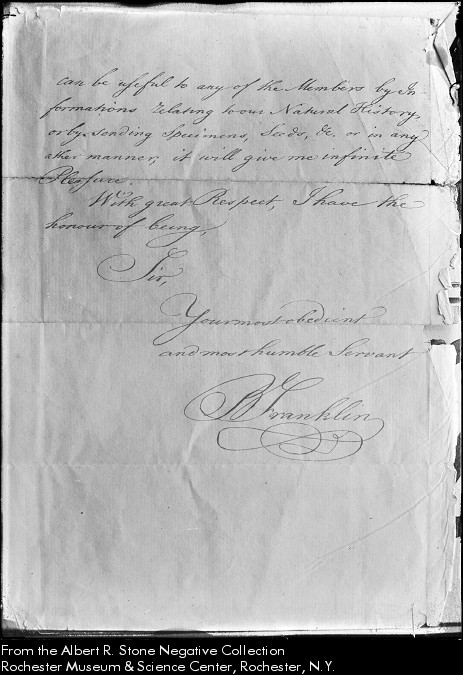 can be useful to any of the Members by In-
formations relating to our Natural History,
or by sending Specimens, Seeds, &c. or in any
other manner, it will give me infinite
Pleasure.
With great Respect, I have the
honour of being,
Sir,
Your most obedient
and most humble Servant
B Franklin
From the Albert R. Stone Negative Collection
Rochester Museum & Science Center, Rochester, N.Y.